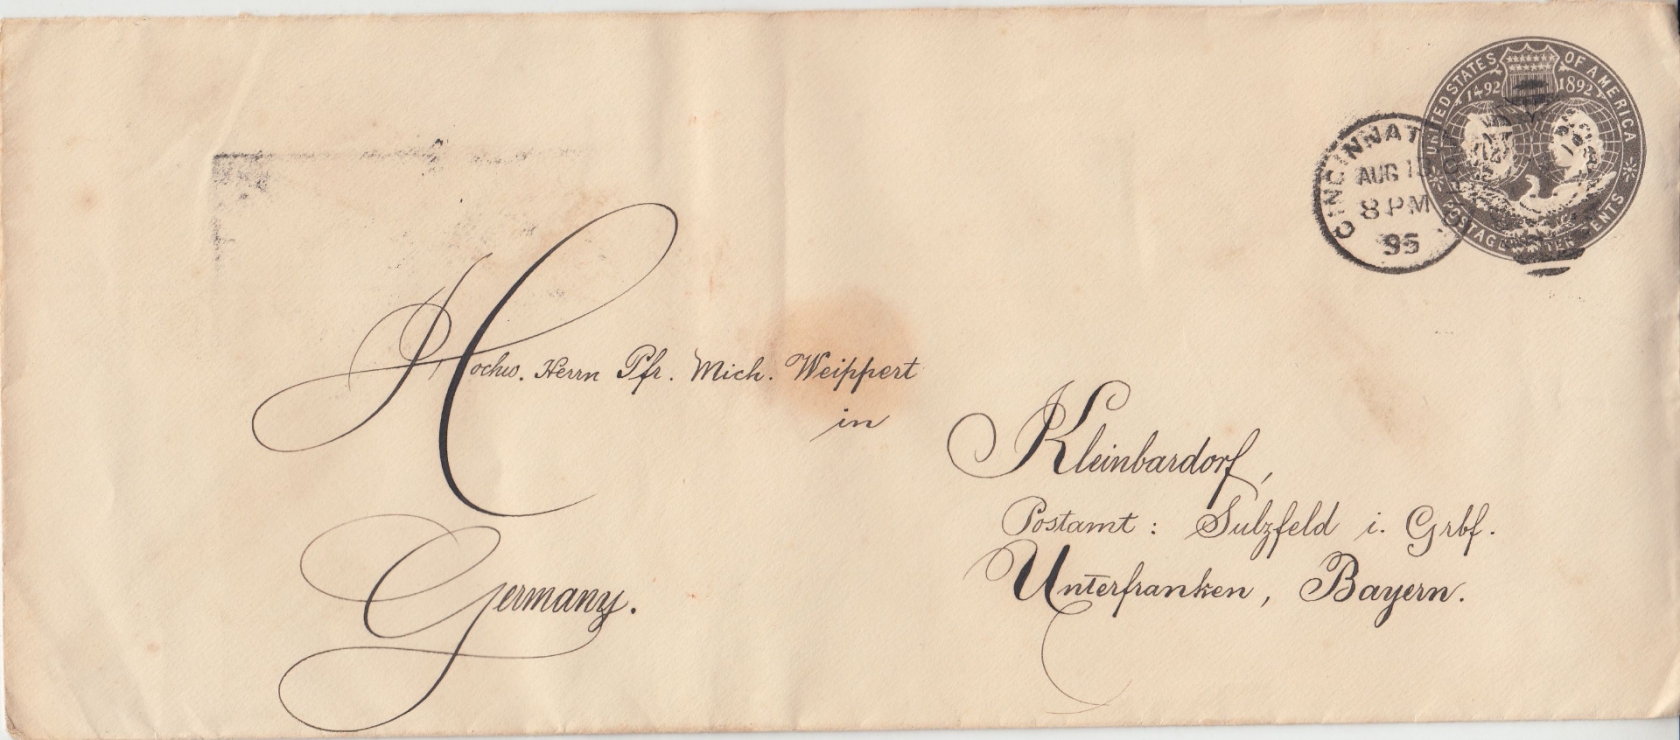 UNITED STATES OF AMERICA
1492 1892
POSTAGE TEN CENTS
CINCINNATI
AUG 13
8 PM
95
Hochw. Herrn Pfr. Mich. Weippert
in
Kleinbardorf,
Postamt: Sulzfeld i. Grbf.
Unterfranken, Bayern.
Germany.